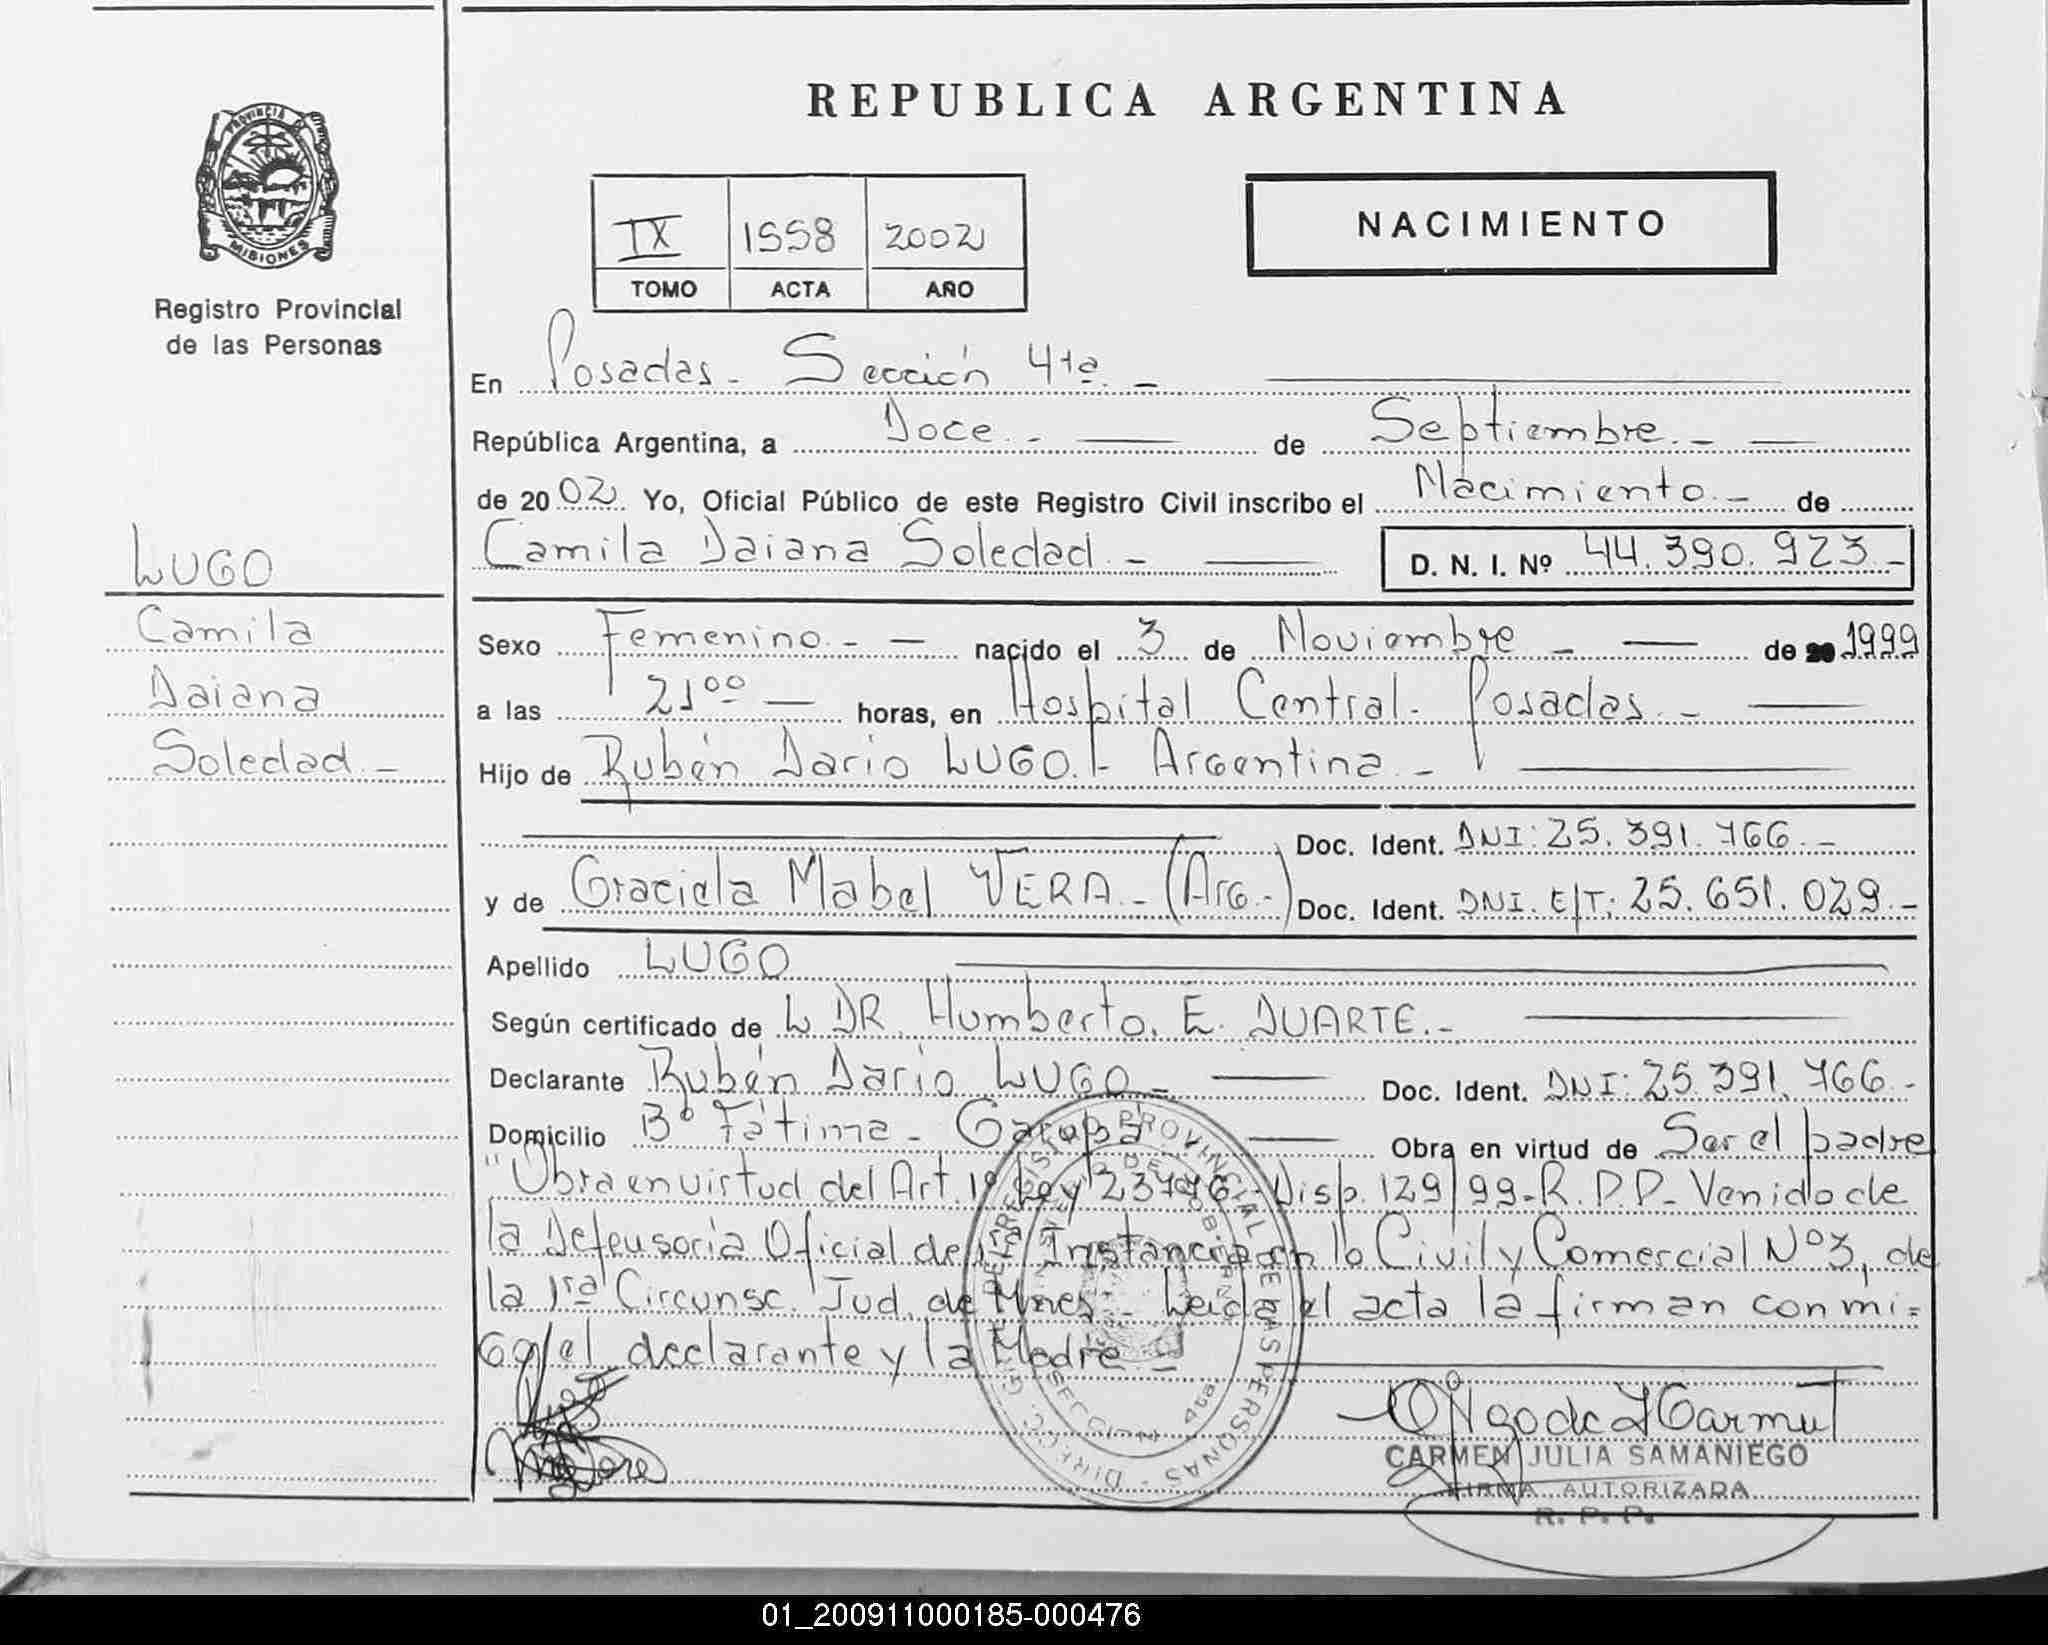 REPUBLICA ARGENTINA
PROVINCIA DE
MISIONES
Registro Provincial
de las Personas
NACIMIENTO
IX 1558 2002
TOMO ACTA AÑO
En Posadas - Sección 4ta. -
República Argentina, a Doce. - de Septiembre. -
de 2002 Yo, Oficial Público de este Registro Civil inscribo el Nacimiento. - de
Camila Daiana Soledad. - D. N. I. Nº 44.390.923 -
LUGO
Camila
Daiana
Soledad. -
Sexo Femenino. - nacido el 3 de Noviembre - de 20 1999
a las 21⁰⁰ horas, en Hospital Central. Posadas. -
Hijo de Rubén Dario LUGO. - Argentina. -
Doc. Ident. DNI: 25.391.766. -
y de Graciela Mabel VERA. - (Arg. -) Doc. Ident. DNI. E/T: 25.651.029. -
Apellido LUGO
Según certificado de L DR. Humberto. E. DUARTE. -
Declarante Rubén Dario LUGO - Doc. Ident. DNI: 25.391.766. -
Domicilio Bº Fátima - Garupá Obra en virtud de Ser el padre
"Obra en virtud del Art. 1º Ley 23776 - Disp. 129/99-R.P.P- Venido de
la Defensoria Oficial de 1ª Instancia en lo Civil y Comercial Nº3, de
la 1ra Circunsc. Jud. de Mnes - Leida el acta la firman con mi=
go/el declarante y la Madre -
DIRECC. GRAL. DEL REGISTRO PROVINCIAL DE LAS PERSONAS
SECCION 4ta
CARMEN JULIA SAMANIEGO
FIRMA AUTORIZADA
R. P. P.
01_200911000185-000476